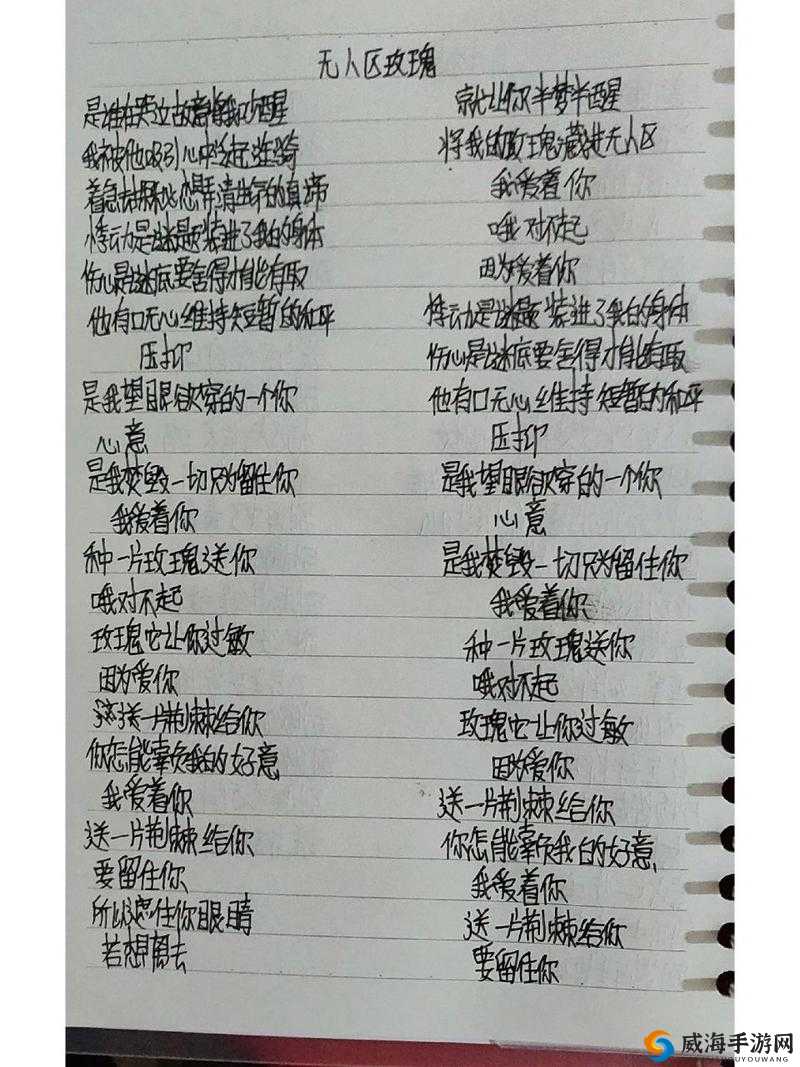 无人区玫瑰
是谁在旁边故意将我吵醒
我被他吸引心中泛起涟漪
着急去 想弄清生命的真谛
悸动是谜题装进了我的身体
伤心是谜底要舍得才能有取
他有口无心维持短暂的和平
压抑
是我望眼欲穿的一个你
心意
是我焚毁一切只为留住你
我爱着你
种一片玫瑰送你
哦对不起
玫瑰它让你过敏
因为爱你
送一片荆棘给你
你怎能辜负我的好意
我爱着你
送一片荆棘给你
要留住你
所以遮住你眼睛
若想离去
就让你半梦半醒
将我的玫瑰藏进无人区
我爱着你
哦对不起
因为爱着你
悸动是谜题装进了我的身体
伤心是谜底要舍得才能有取
他有口无心维持短暂的和平
压抑
是我望眼欲穿的一个你
心意
是我焚毁一切只为留住你
我爱着你
种一片玫瑰送你
哦对不起
玫瑰它让你过敏
因为爱你
送一片荆棘给你
你怎能辜负我的好意
我爱着你
送一片荆棘给你
要留住你
威海手游网